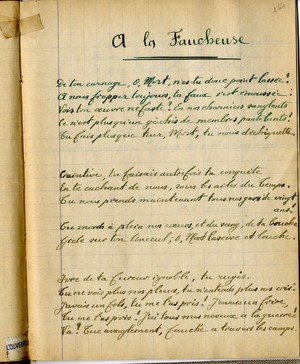 A la Faucheuse
De ton carnage, O, Mort, n'es-tu donc point lassée ?
A nous frapper toujours, ta faux s'est émoussée !
Vois ton œuvre néfaste ! En nos charniers sanglants
Ce n'est plus qu'un gâchis de membres pantelants !
Tu fais plus que tuer, Mort, tu nous déchiquettes,
Craintive, tu faisais autrefois ta enquête
En te cachant de nous, sous les ailes du Temps.
Tu nous prends maintenant tous nos gars de vingt
ans.
Tu mords à plein nos cœurs, et du sang, de ta bouche
Gicle sur ton linceul, O, Mort lascive et louche.
Ivre de ta fureur ignoble, tu rugis.
Tu ne vois plus nos pleurs, tu n'entends plus nos cris.
J'avais un fils, tu me l'as pris ! J'avais un frère,
Tu me l'as pris ! J'ai tous mes neveux à la guerre !
Va ! Tue aveuglément, fauche à travers les camps.
L'OUVERTU